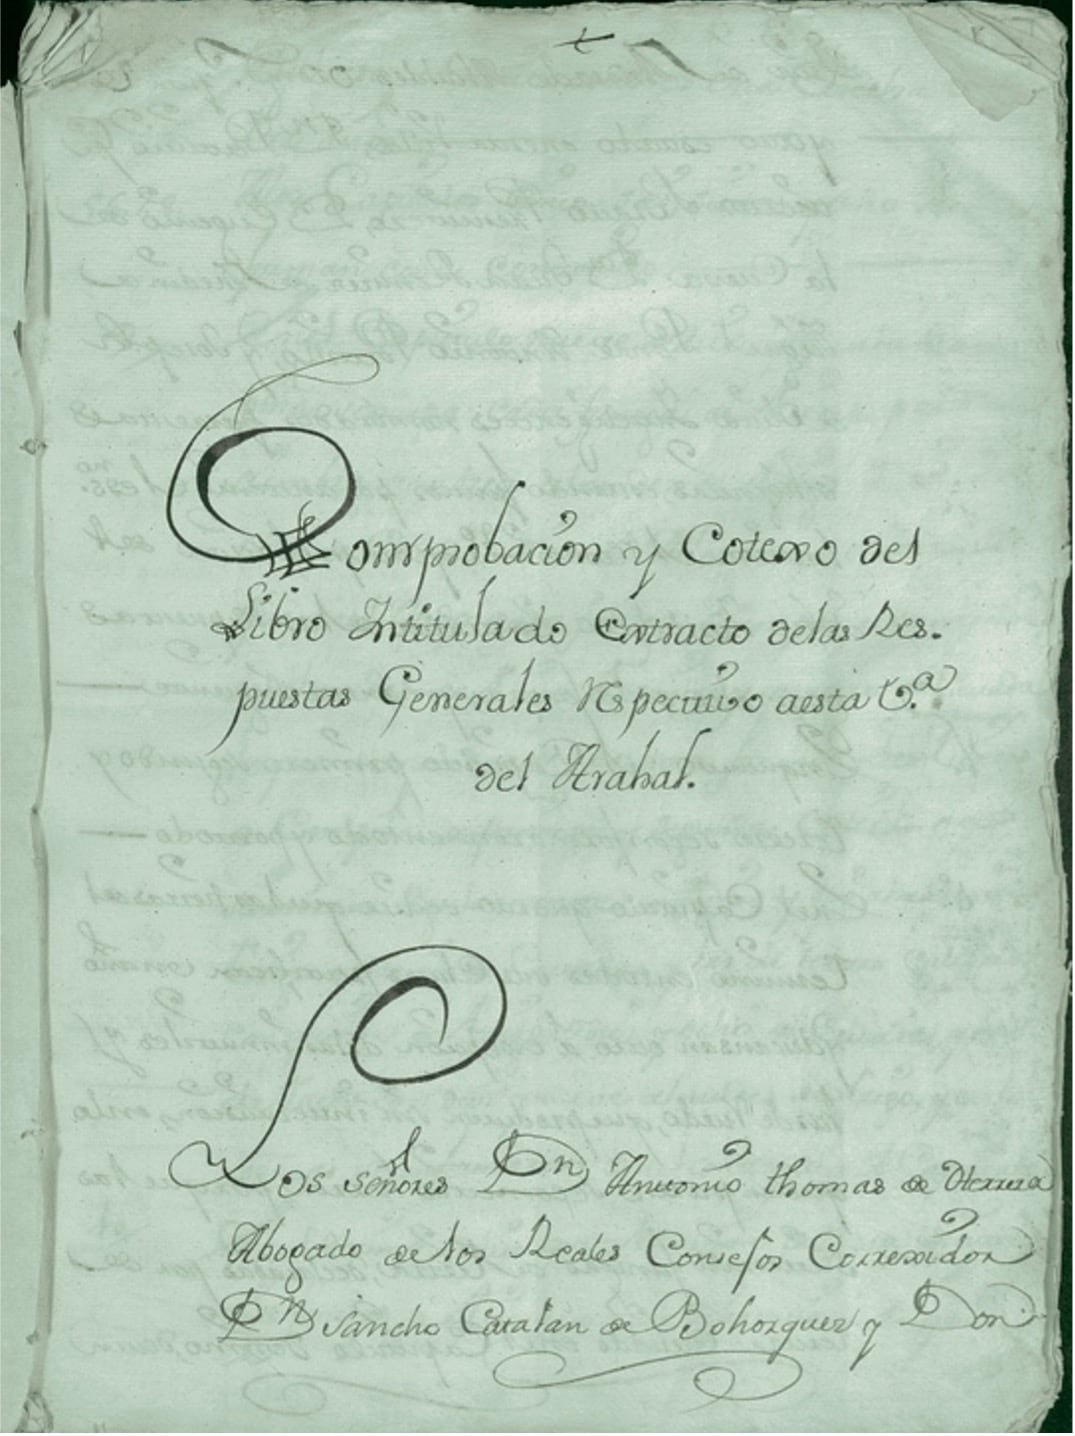 Comprobacion y Cotexo del
Libro Intitulado Extracto delas Res.
puestas Generales Respectivo aesta V.ª
del Arahal.
Los señores Dn Antonio thomas de Herrera
Abogado de los Reales Consejos Correxidor
Dn Sancho Catalan de Bohorquez y Don